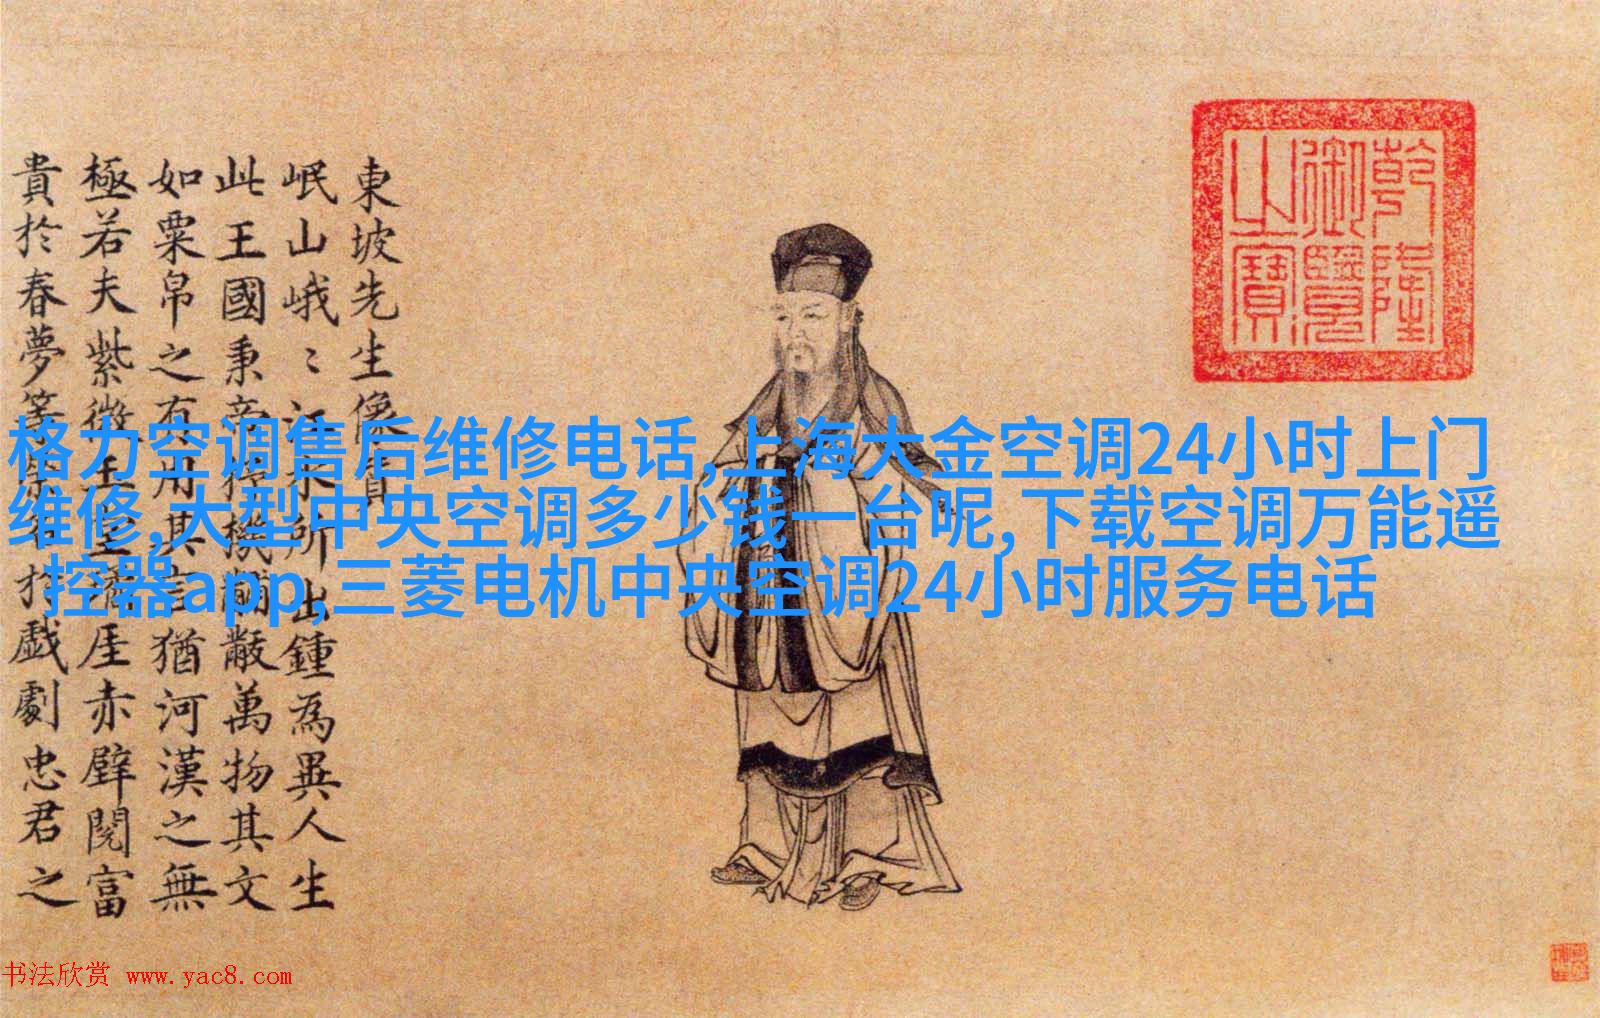 乾隆
御覽
之寶
東坡先生像
岷山峨〻江水所出鍾為異人生
此王國秉帝杼機黼黻萬物其文
如粟帛之有用其言猶河漢之無
極若夫紫微玉堂瓊厓赤壁閱富
貴於春夢等榮名於戲劇忠君之
格力空调售后维修电话,上海大金空调24小时上门
维修,大型中央空调多少钱一台呢,下载空调万能遥
控器app,三菱电机中央空调24小时服务电话
书法欣赏 www.yac8.com